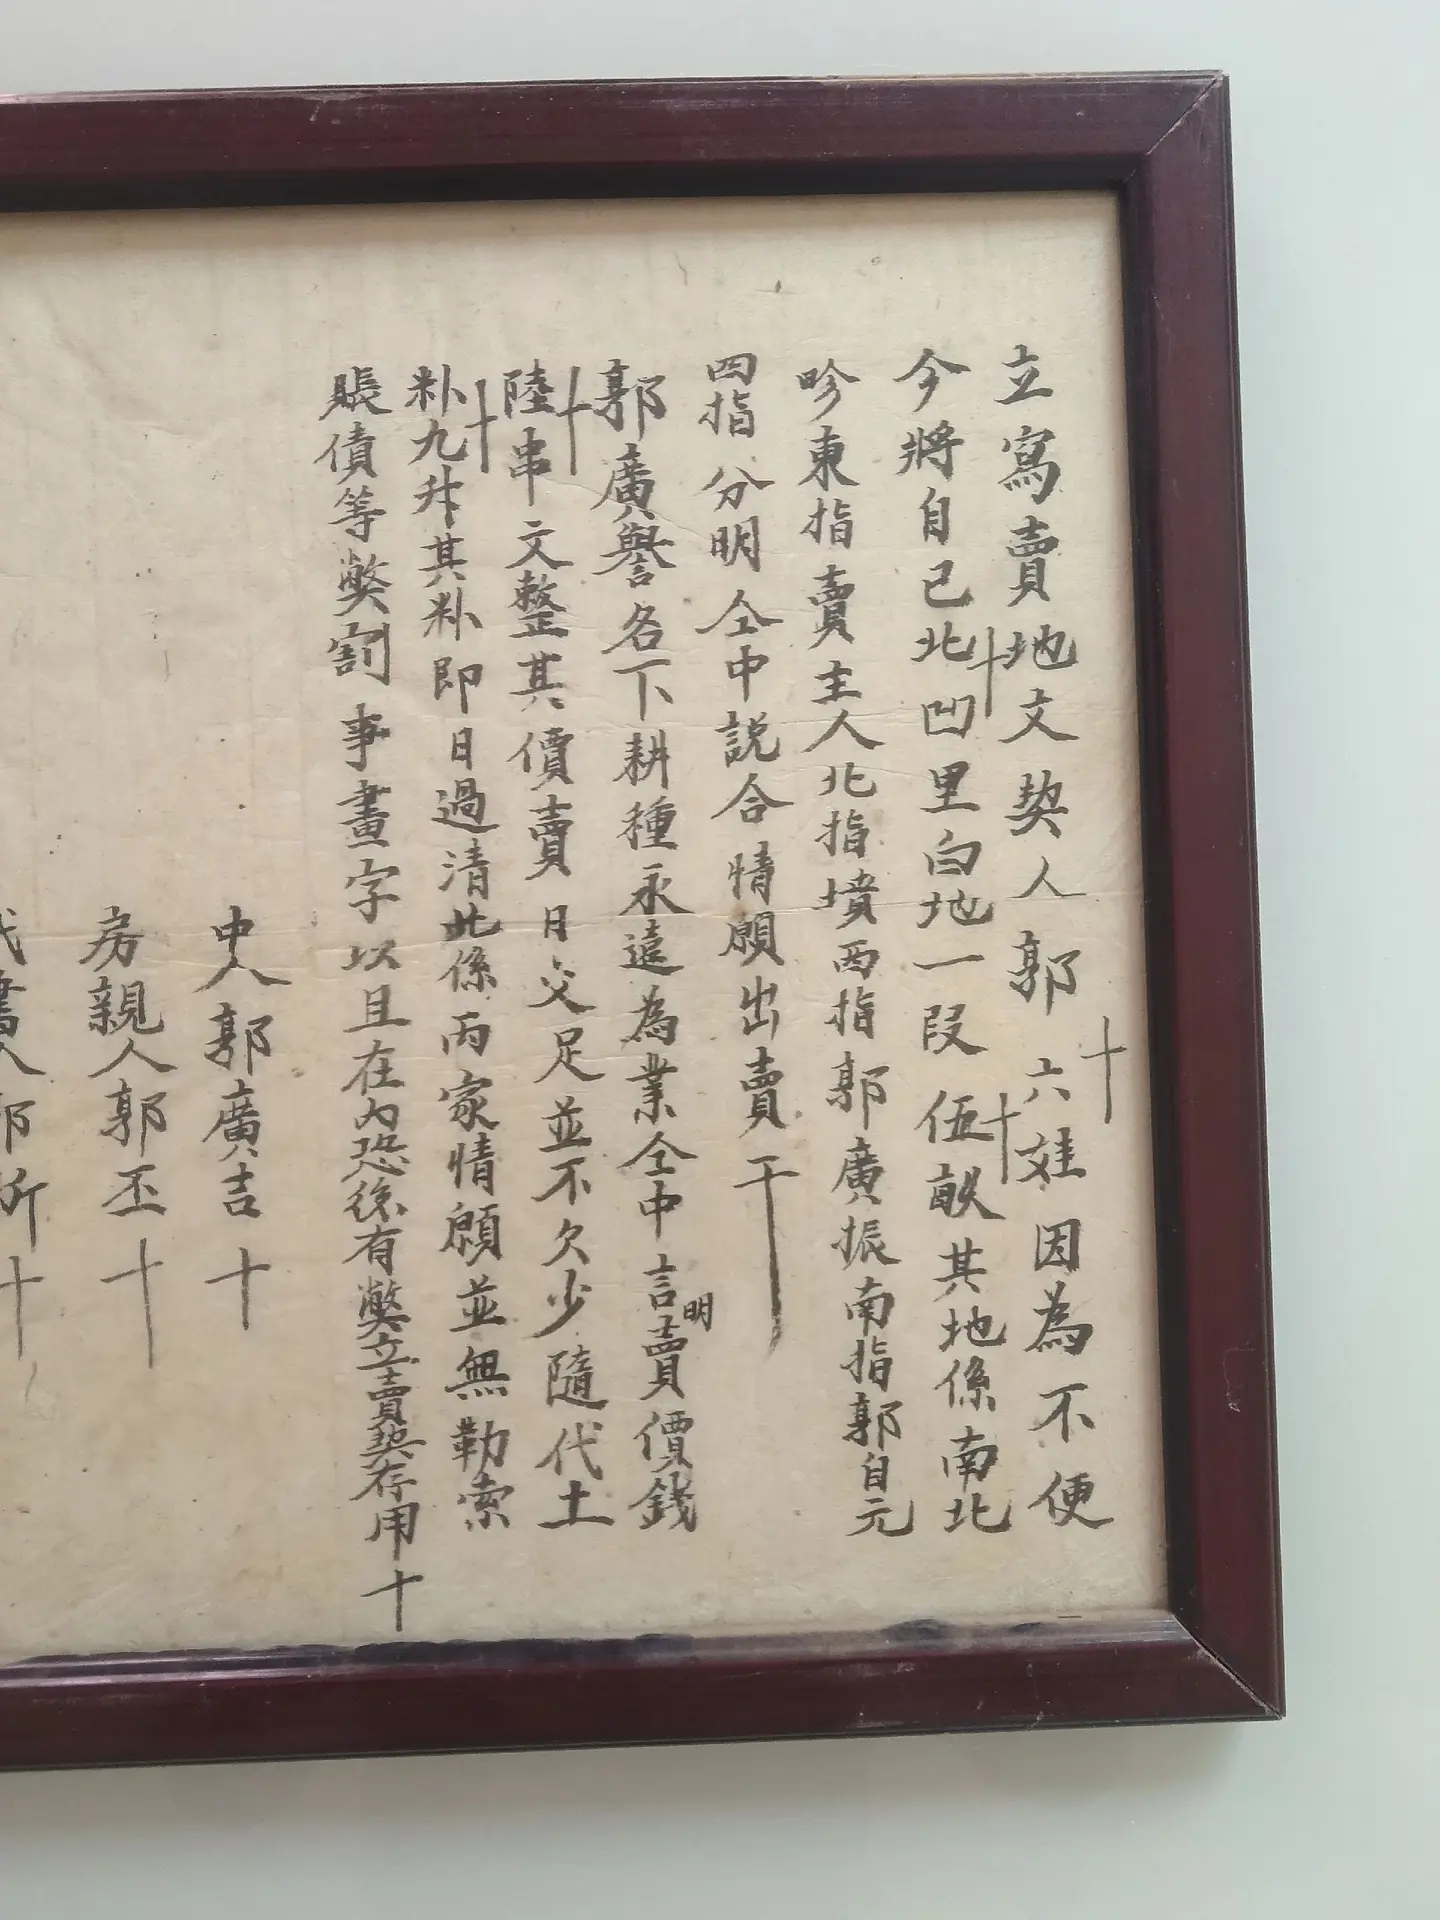 立寫賣地文契人郭六娃因為不便
十
今將自己北凹里白地一段伍畝其地係南北
十
十
畛東指賣主人北指墳西指郭廣振南指郭自元
四指分明仝中説合情願出賣干
郭廣譽名下耕種永遠為業仝中言明賣價錢
十
陸串文整其價賣日交足並不欠少隨代土
十
粆九升其粆即日過清此係両家情願並無勒索
賬債等獘割事畫字以且在內恐後有獘立賣契存用十
中人郭廣吉十
房親人郭丕十
代書人郭
十